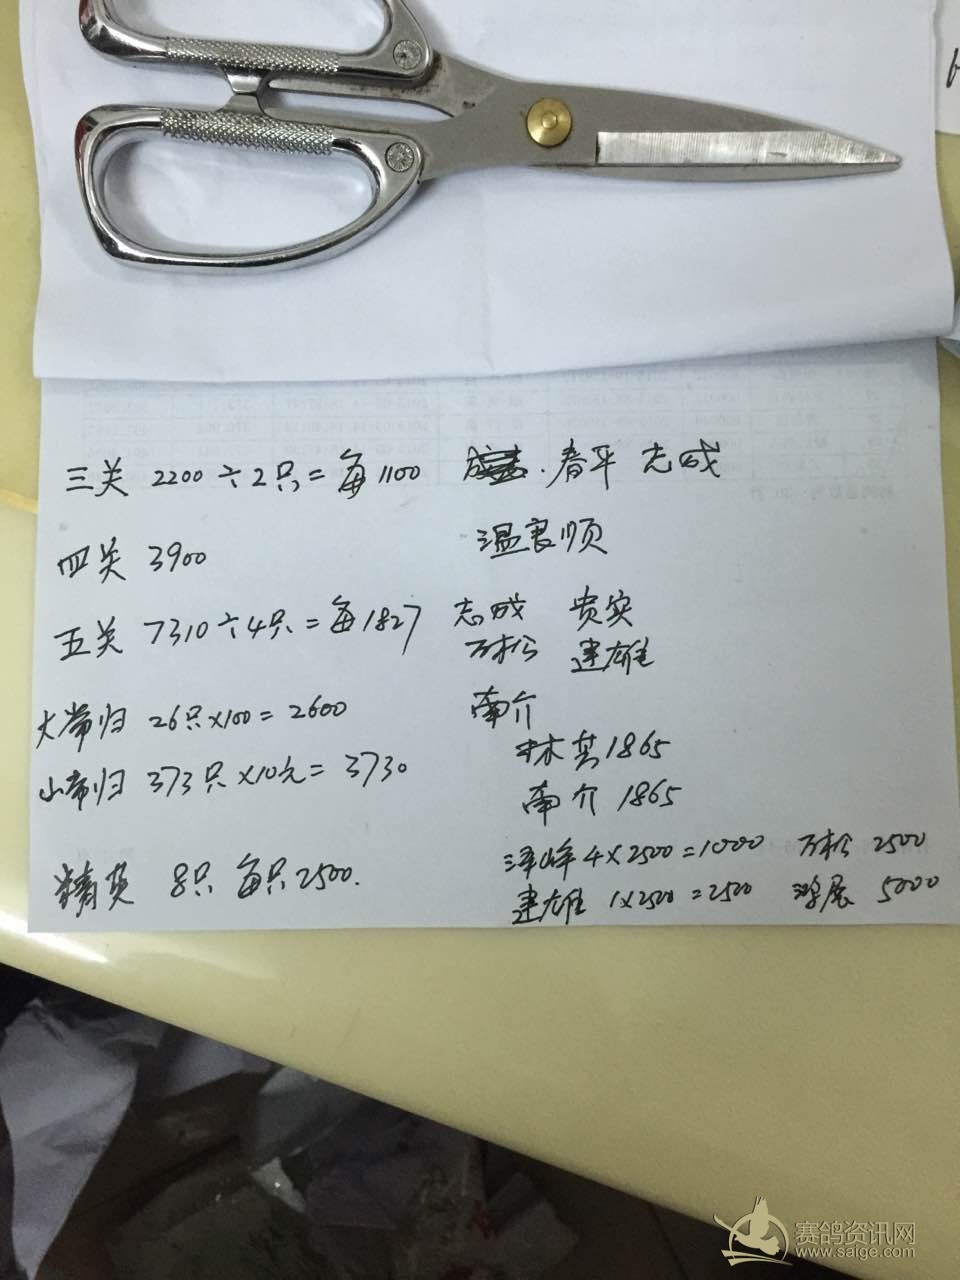 三关 2200÷2只=每1100 春平 志成
四关 3900 温良顺
五关 7310÷4只=每1827 志成 贵实
万松 建雄
大常归 26只×100=2600 南介
林芸1865
山常归 373只×10元=3730
南介 1865
泽峰4×2500=10000 万松 2500
精英 8只 每只2500.
建雄 1×2500=2500 鸿展 5000
赛鸽资讯网
www.saige.com